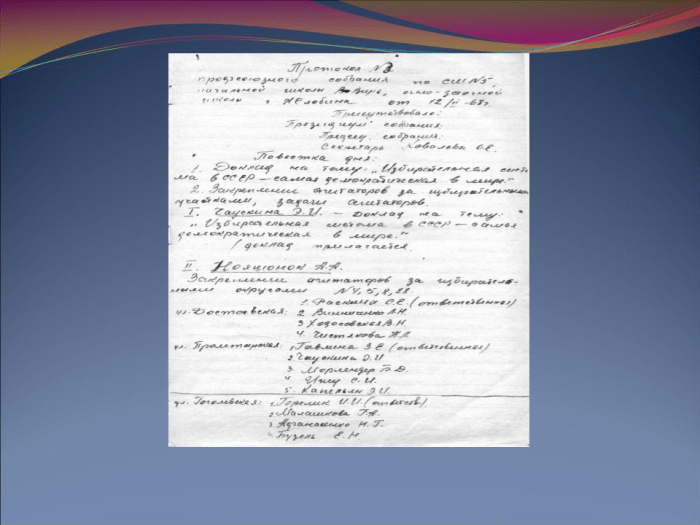 Протокол N3
профсоюзного собрания по СШ N5,
начальной школы очно-заочной
школы г. Жлобина от 12/II-65г.
Присутствовало:
Президиум собрания:
Председ. собрания:
Секретарь Ковалева О.Е.
Повестка дня:
1. Доклад на тему: „Избирательная систе
ма в СССР – самая демократическая в мире"
2. Закрепление агитаторов за избирательными
участками, задачи агитаторов.
I. Чаускина Э.И. – доклад на тему:
„Избирательная система в СССР – самая
демократическая в мире."
/доклад прилагается.
II. А.А.
Закрепление агитаторов за избиратель-
ными округами N 4, 5,
1. Фаскина С.Е. (ответственное)
ул. Достоевская: 2 Винниченко А.Н.
3 Ходосовская В.Н.
4. Чистякова
ул. Пролетарская: 1. Гавлина З.Е. (ответственное)
2. Чаускина Э.И
3. Морлендер Б.Д.
4 С.И.
5. Капельян Э.И.
ул. Гоголевская: 1 Горелик И.И. (ответств)
2 Малашкова Г.А.
3 Афанасенко Н.Г.
4 Бузель Е.Н.